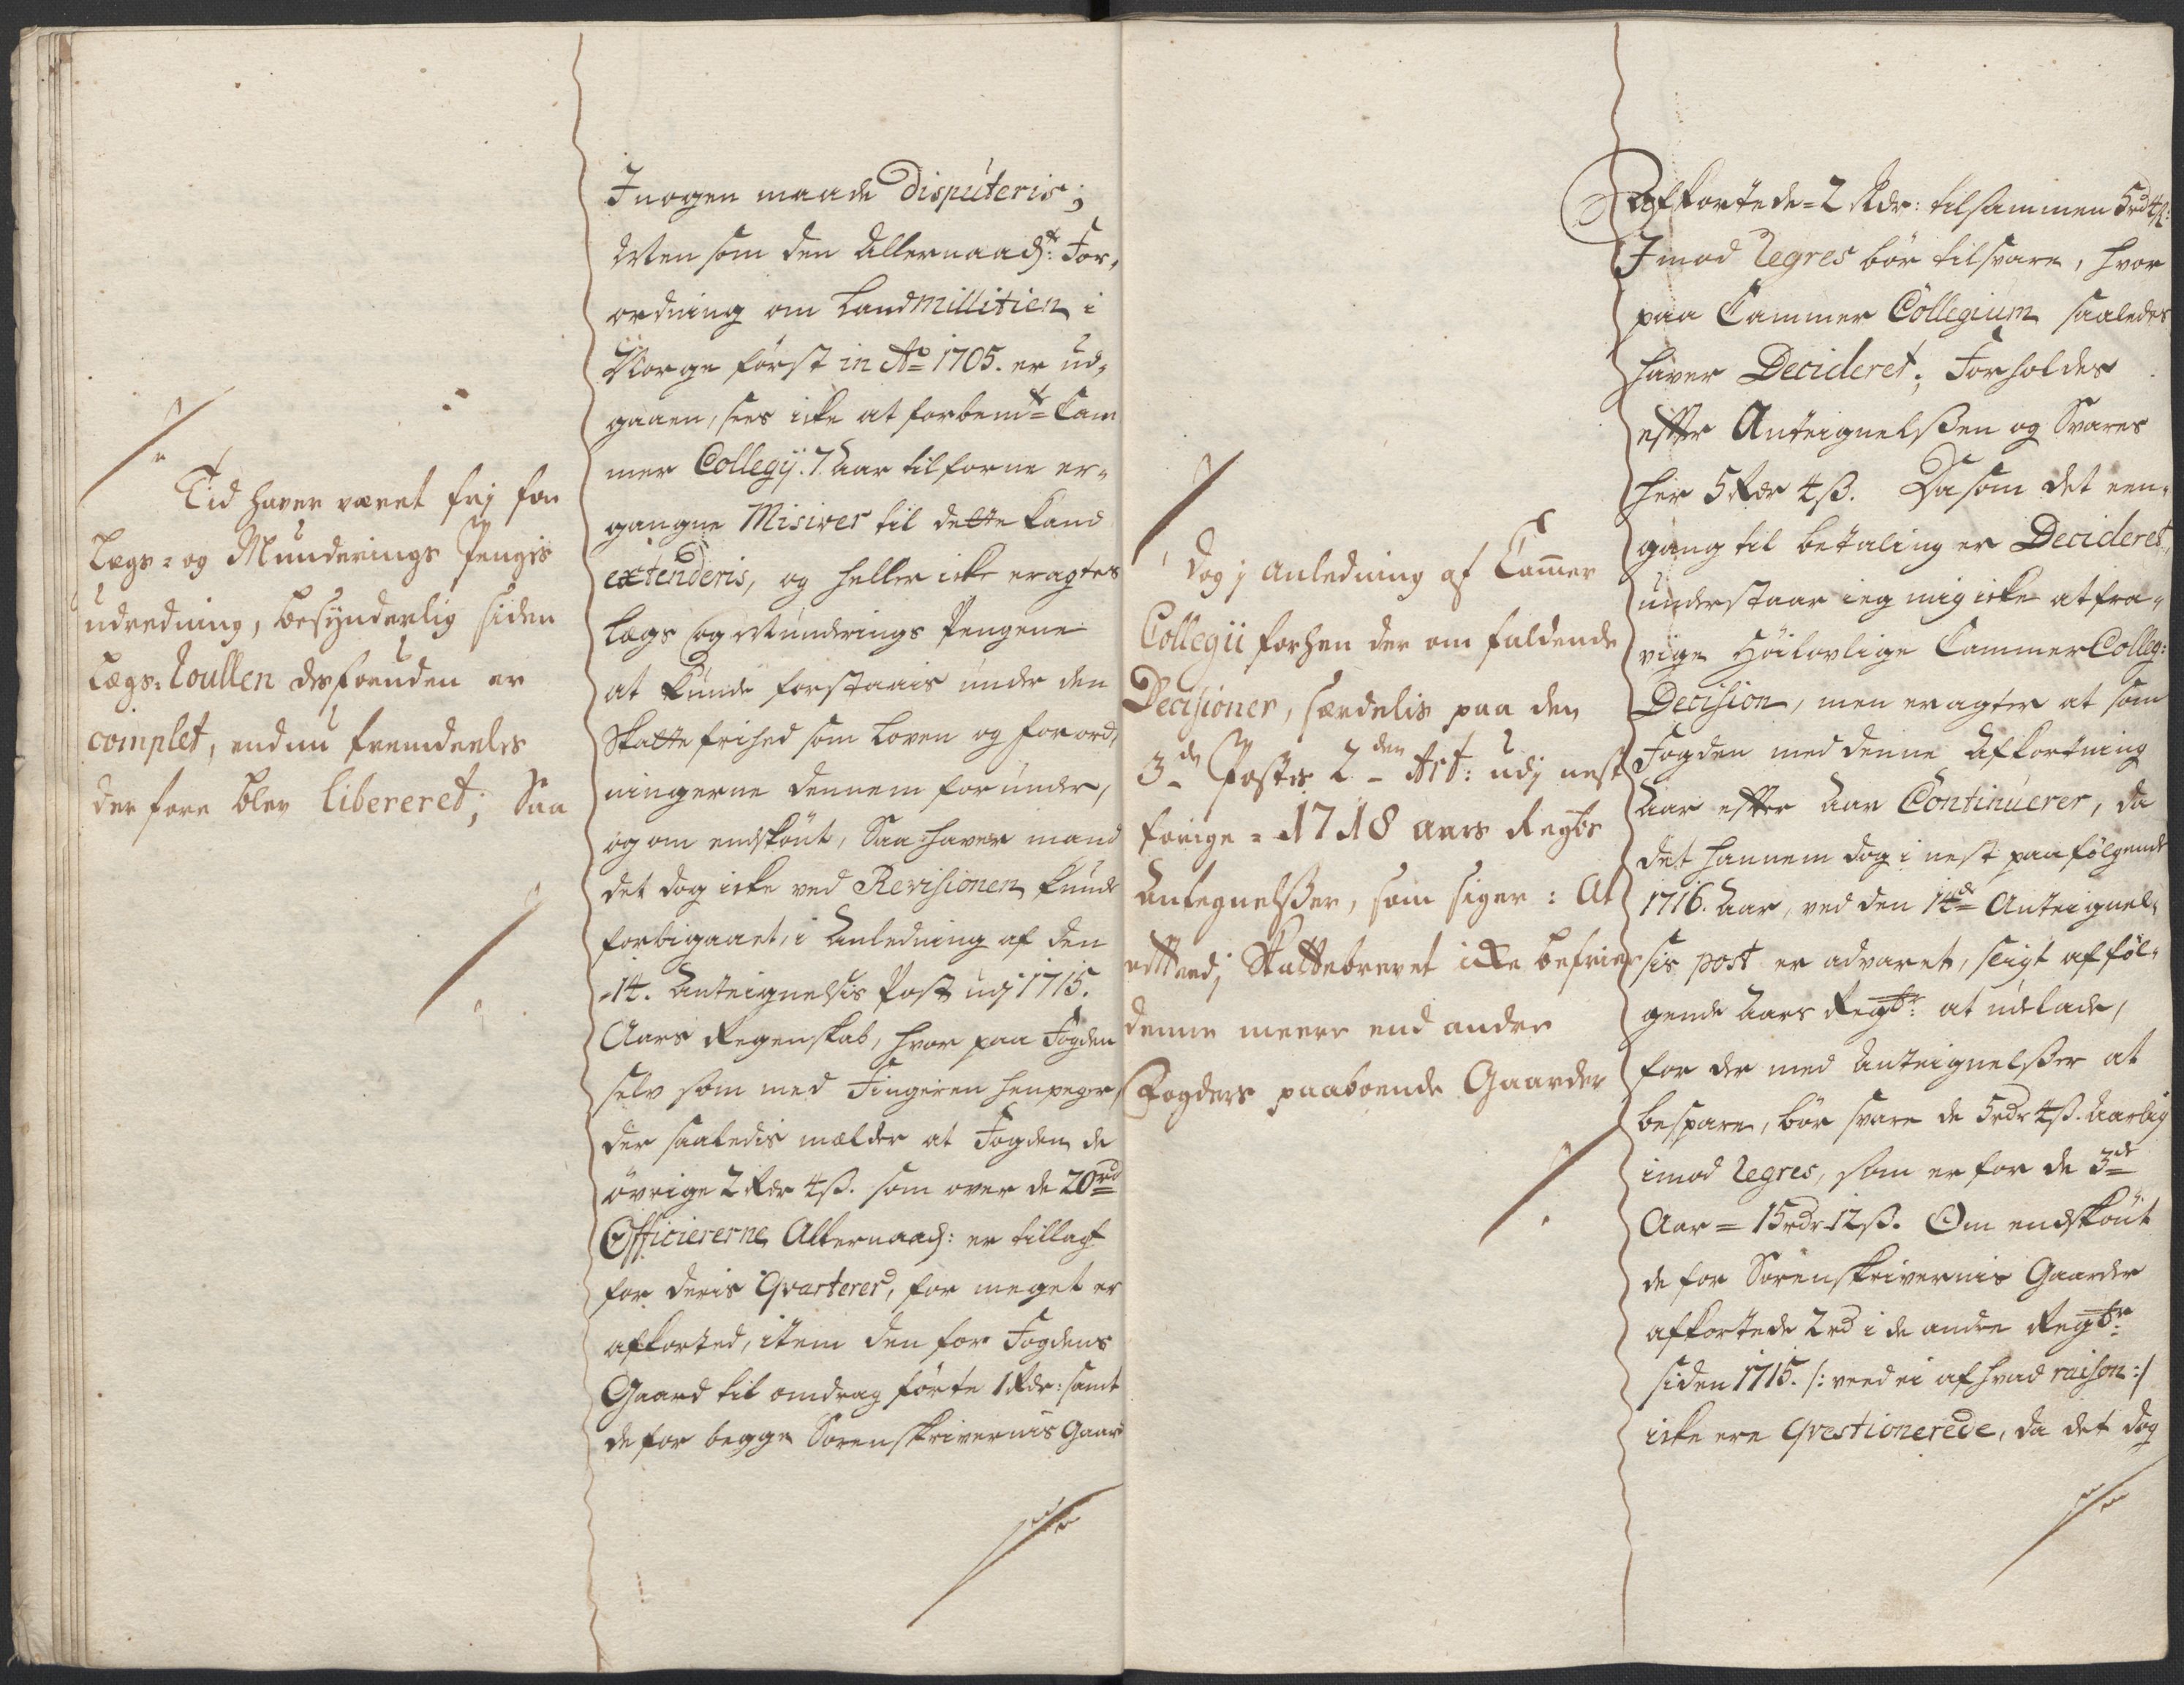 Tid haver været frj for
Lægs- og Munderings Pengis
udredning, besynderlig siden
Lægs-Roullen desforuden er
complet, endnu fremdeelis
derfore blev libereret; Saa
I nogen maade disputeris;
Men som den Allernaadst: For-
ordning om Landmillitien i
Norge først in Ao 1705. er ud-
gaaen, sees icke at forbemte Cam
mer Collegij 7 Aar tilforne er-
gangne Misiver til dette kand
extenderis, og heller icke eragtes
Lægs og Munderings Pengene
at kunde forstaais under den
Skatte frihed som Loven og forord-
ningerne dennem forunder,
og om endskønt, Saa haver mand
det dog icke ved Revisionen kunde
forbigaaet, i Anledning af den
14. Anteignelsis Post udj 1715.
Aars Regenskab, hvor paa Fogden
selv som med Fingeren henpeger,
der saaledis melder at Fogden de
øvrige 2 Rdr 4 ß. som over de 20 rd
Officiererne Allernaad: er tillagt
for deris Qvarterer, for meget er
afkorted, item den for Fogdens
Gaard til omdrag førte 1 Rdr: samt
de for begge Sorenskrivernis Gaar
Dog j anledning af Cammer
Collegii forhen der om faldende
Decisioner, særdelis paa den
3de Postis 2den Art: udj nest
forige 1718 aars Regbs
Antegnelßer, som siger: At
ettendj Skattebrevet icke befrier
denne meere end andre
Fogders paaboende Gaarder
afkortede 2 Rdr: tilsammen 5 rd 4 ß:
Imod Regres bør tilsvare, hvor
paa Cammer Collegium saaledes
haver Decideret; Forholdes
effter Anteignelßen og Svares
her 5 Rdr 4 ß. Da som det een-
gang til betaling er Decideret,
understaar ieg mig icke at fra-
vige Høilovlige Cammer Colleg:
Decision, men eragter at som
Fogden med denne Afkortning
Aar effter Aar Continuerer, da
det hannem dog i nest paafølgende
1716. Aar, ved den 14de Anteignel-
sis post er advaret, sligt af føl-
gende Aars Regbr: at udelade,
for der med Anteignelßer at
bespare, bør svare de 5 rdr 4 ß. Aarlig
imod Regres, som er for de 3de
Aar = 15 rdr 12 ß. Om endskønt
de for Sorenskrivernis Gaarder
afkortede 2 rd i de andre Regbr
siden 1715. /: veed ei af hvad raison :/
icke ere qvestionerede, da det dog